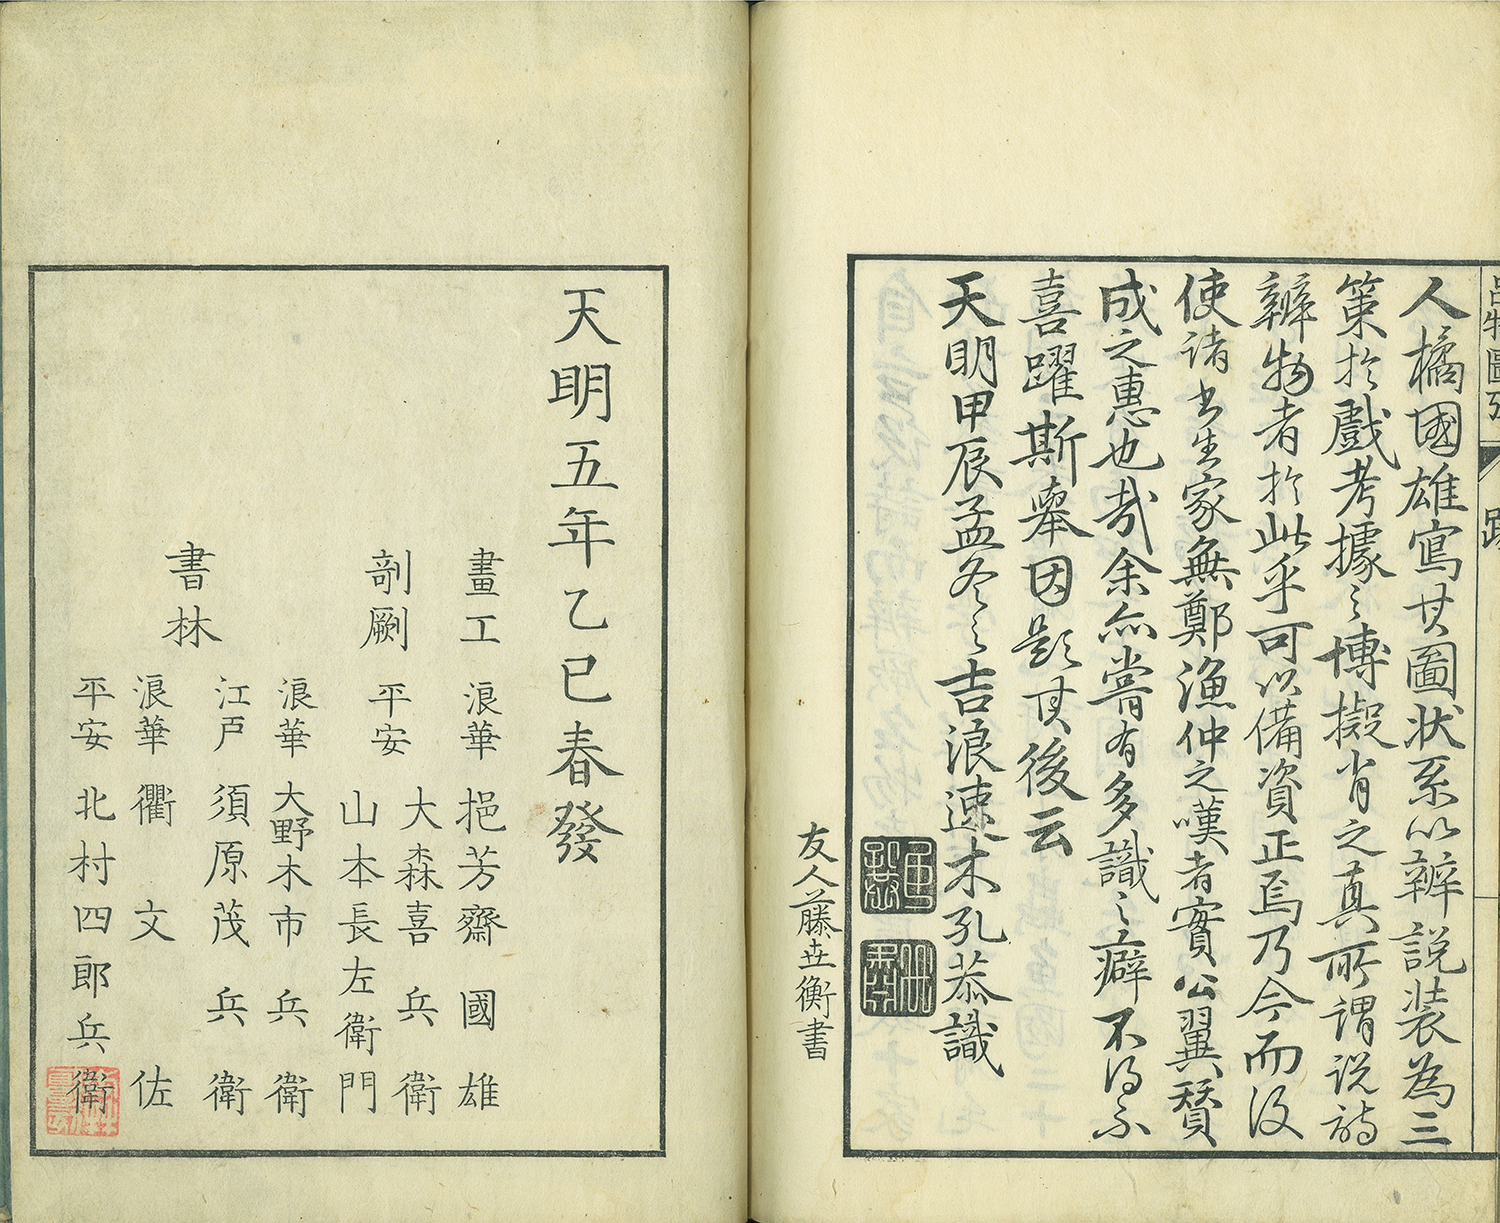 人橘國雄寫其圖状系以辨説装為三
策於戲考據之博擬肖之真所謂説詩
辨物者於此乎可以備資正焉乃今而後
使諸書生家無鄭漁仲之嘆者實公翼賛
成之惠也哉余亦嘗有多識之癖不得不
喜躍斯舉因題其後云
天明甲辰孟冬之吉浪速木孔恭識
友人藤世衡書
天明五年乙巳春發
畫工 浪華 挹芳齋國雄
剞劂 平安 大森喜兵衛
山本長左衛門
書林 浪華 大野木市兵衛
江戸 須原茂兵衛
浪華 衢文佐
平安 北村四郎兵衛